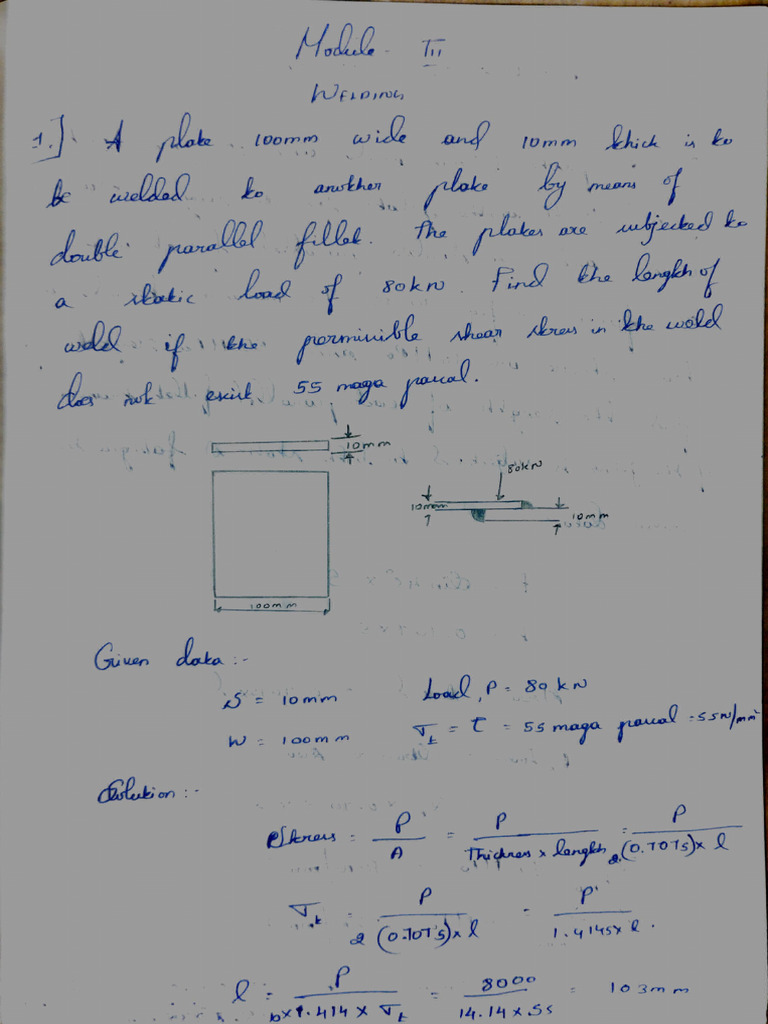 Module - III
WELDING
1.] A plate 100mm wide and 10mm thick is to
be welded to another plate by means of
double parallel fillet. The plates are subjected to
a static load of 80kN. Find the length of
weld if the permissible shear stress in the weld
does not exist 55 maga pascal.
10mm
80kN
10mm
10mm
100mm
Given data :-
S = 10mm Load, P = 80kN
W = 100mm σt = τ = 55 maga pascal = 55N/mm²
Solution :-
Stress = P/A = P/Thickness × length = P/2(0.707s)× l
σt = P/2(0.707s)× l = P/1.414s× l.
l = P/10×1.414× σt = 8000/14.14×55 = 103mm